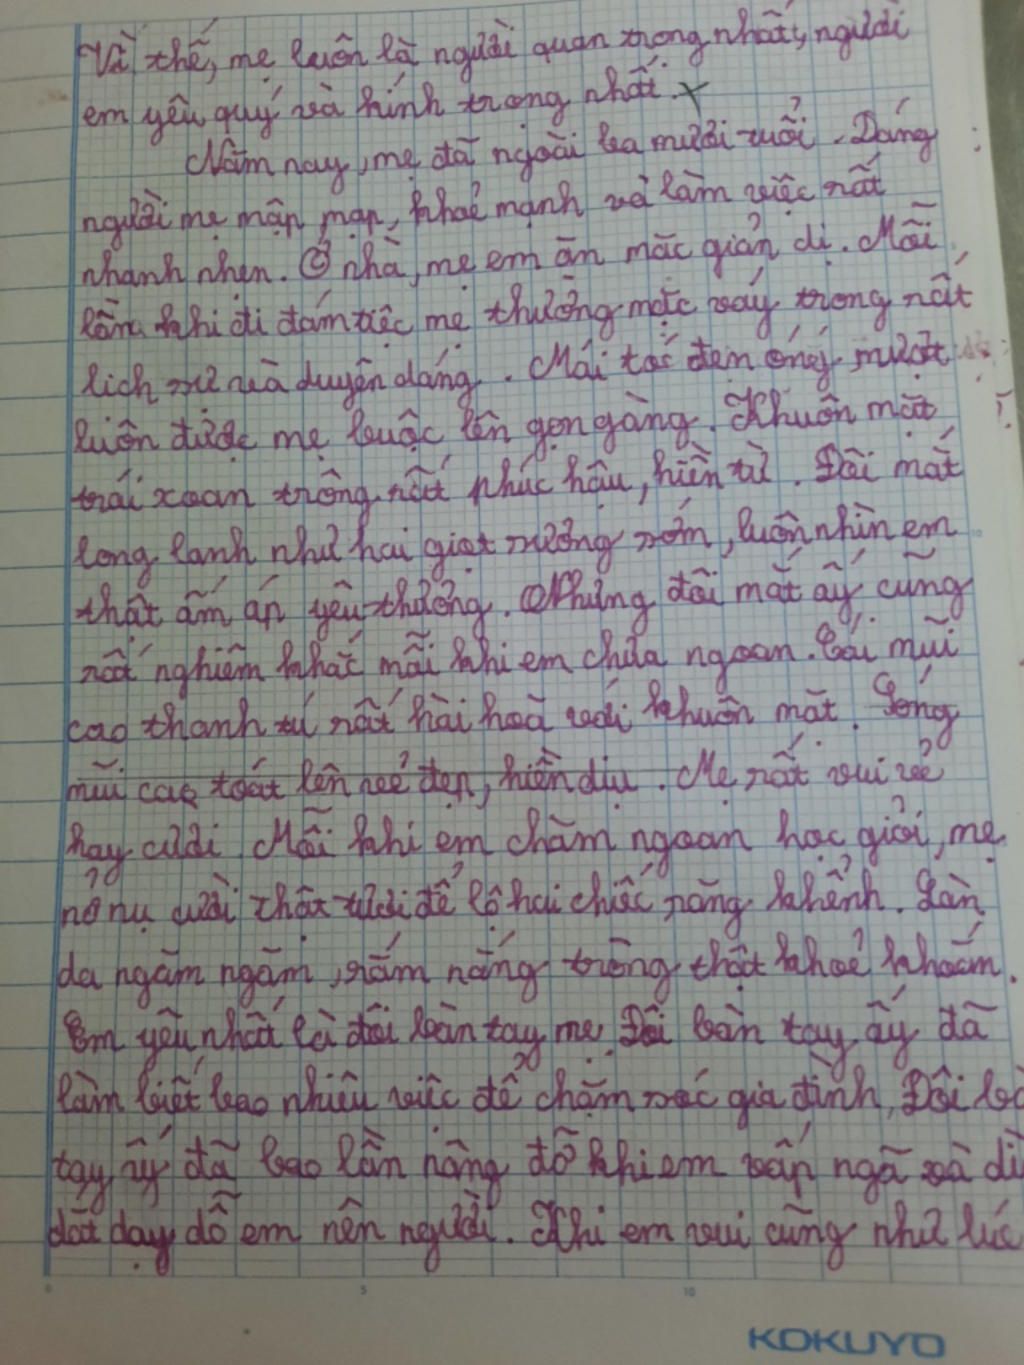 Vì thế, mẹ luôn là người quan trọng nhất, người
em yêu quý và kính trọng nhất.
Năm nay, mẹ đã ngoài ba mươi tuổi. Dáng
người mẹ mập mạp, khoẻ mạnh và làm việc rất
nhanh nhẹn. Ở nhà, mẹ em ăn mặc giản dị. Mỗi
lần khi đi đám tiệc mẹ thường mặc váy trong rất
lịch sự và duyên dáng. Mái tóc đen óng, mượt
luôn được mẹ buộc lên gọn gàng. Khuôn mặt
trái xoan trông rất phúc hậu, hiền từ. Đôi mắt
long lanh như hai giọt sương sớm, luôn nhìn em
thật ấm áp yêu thương. Nhưng đôi mắt ấy cũng
rất nghiêm khắc mỗi khi em chưa ngoan. Cái mũi
cao thanh tú rất hài hoà với khuôn mặt. Sống
mũi cao toát lên vẻ đẹp, hiền dịu. Mẹ rất vui vẻ
hay cười. Mỗi khi em chăm ngoan học giỏi, mẹ
nở nụ cười thật tươi để lộ hai chiếc răng khểnh. Làn
da ngăm ngăm, rám nắng trông thật khoẻ khoắn.
Em yêu nhất là đôi bàn tay mẹ. Đôi bàn tay ấy đã
làm biết bao nhiêu việc để chăm sóc gia đình. Đôi
tay ấy đã bao lần nâng đỡ khi em vấp ngã và dìu
dắt dạy dỗ em nên người. Khi em vui cũng như lúc
0 5 10
KOKUYO